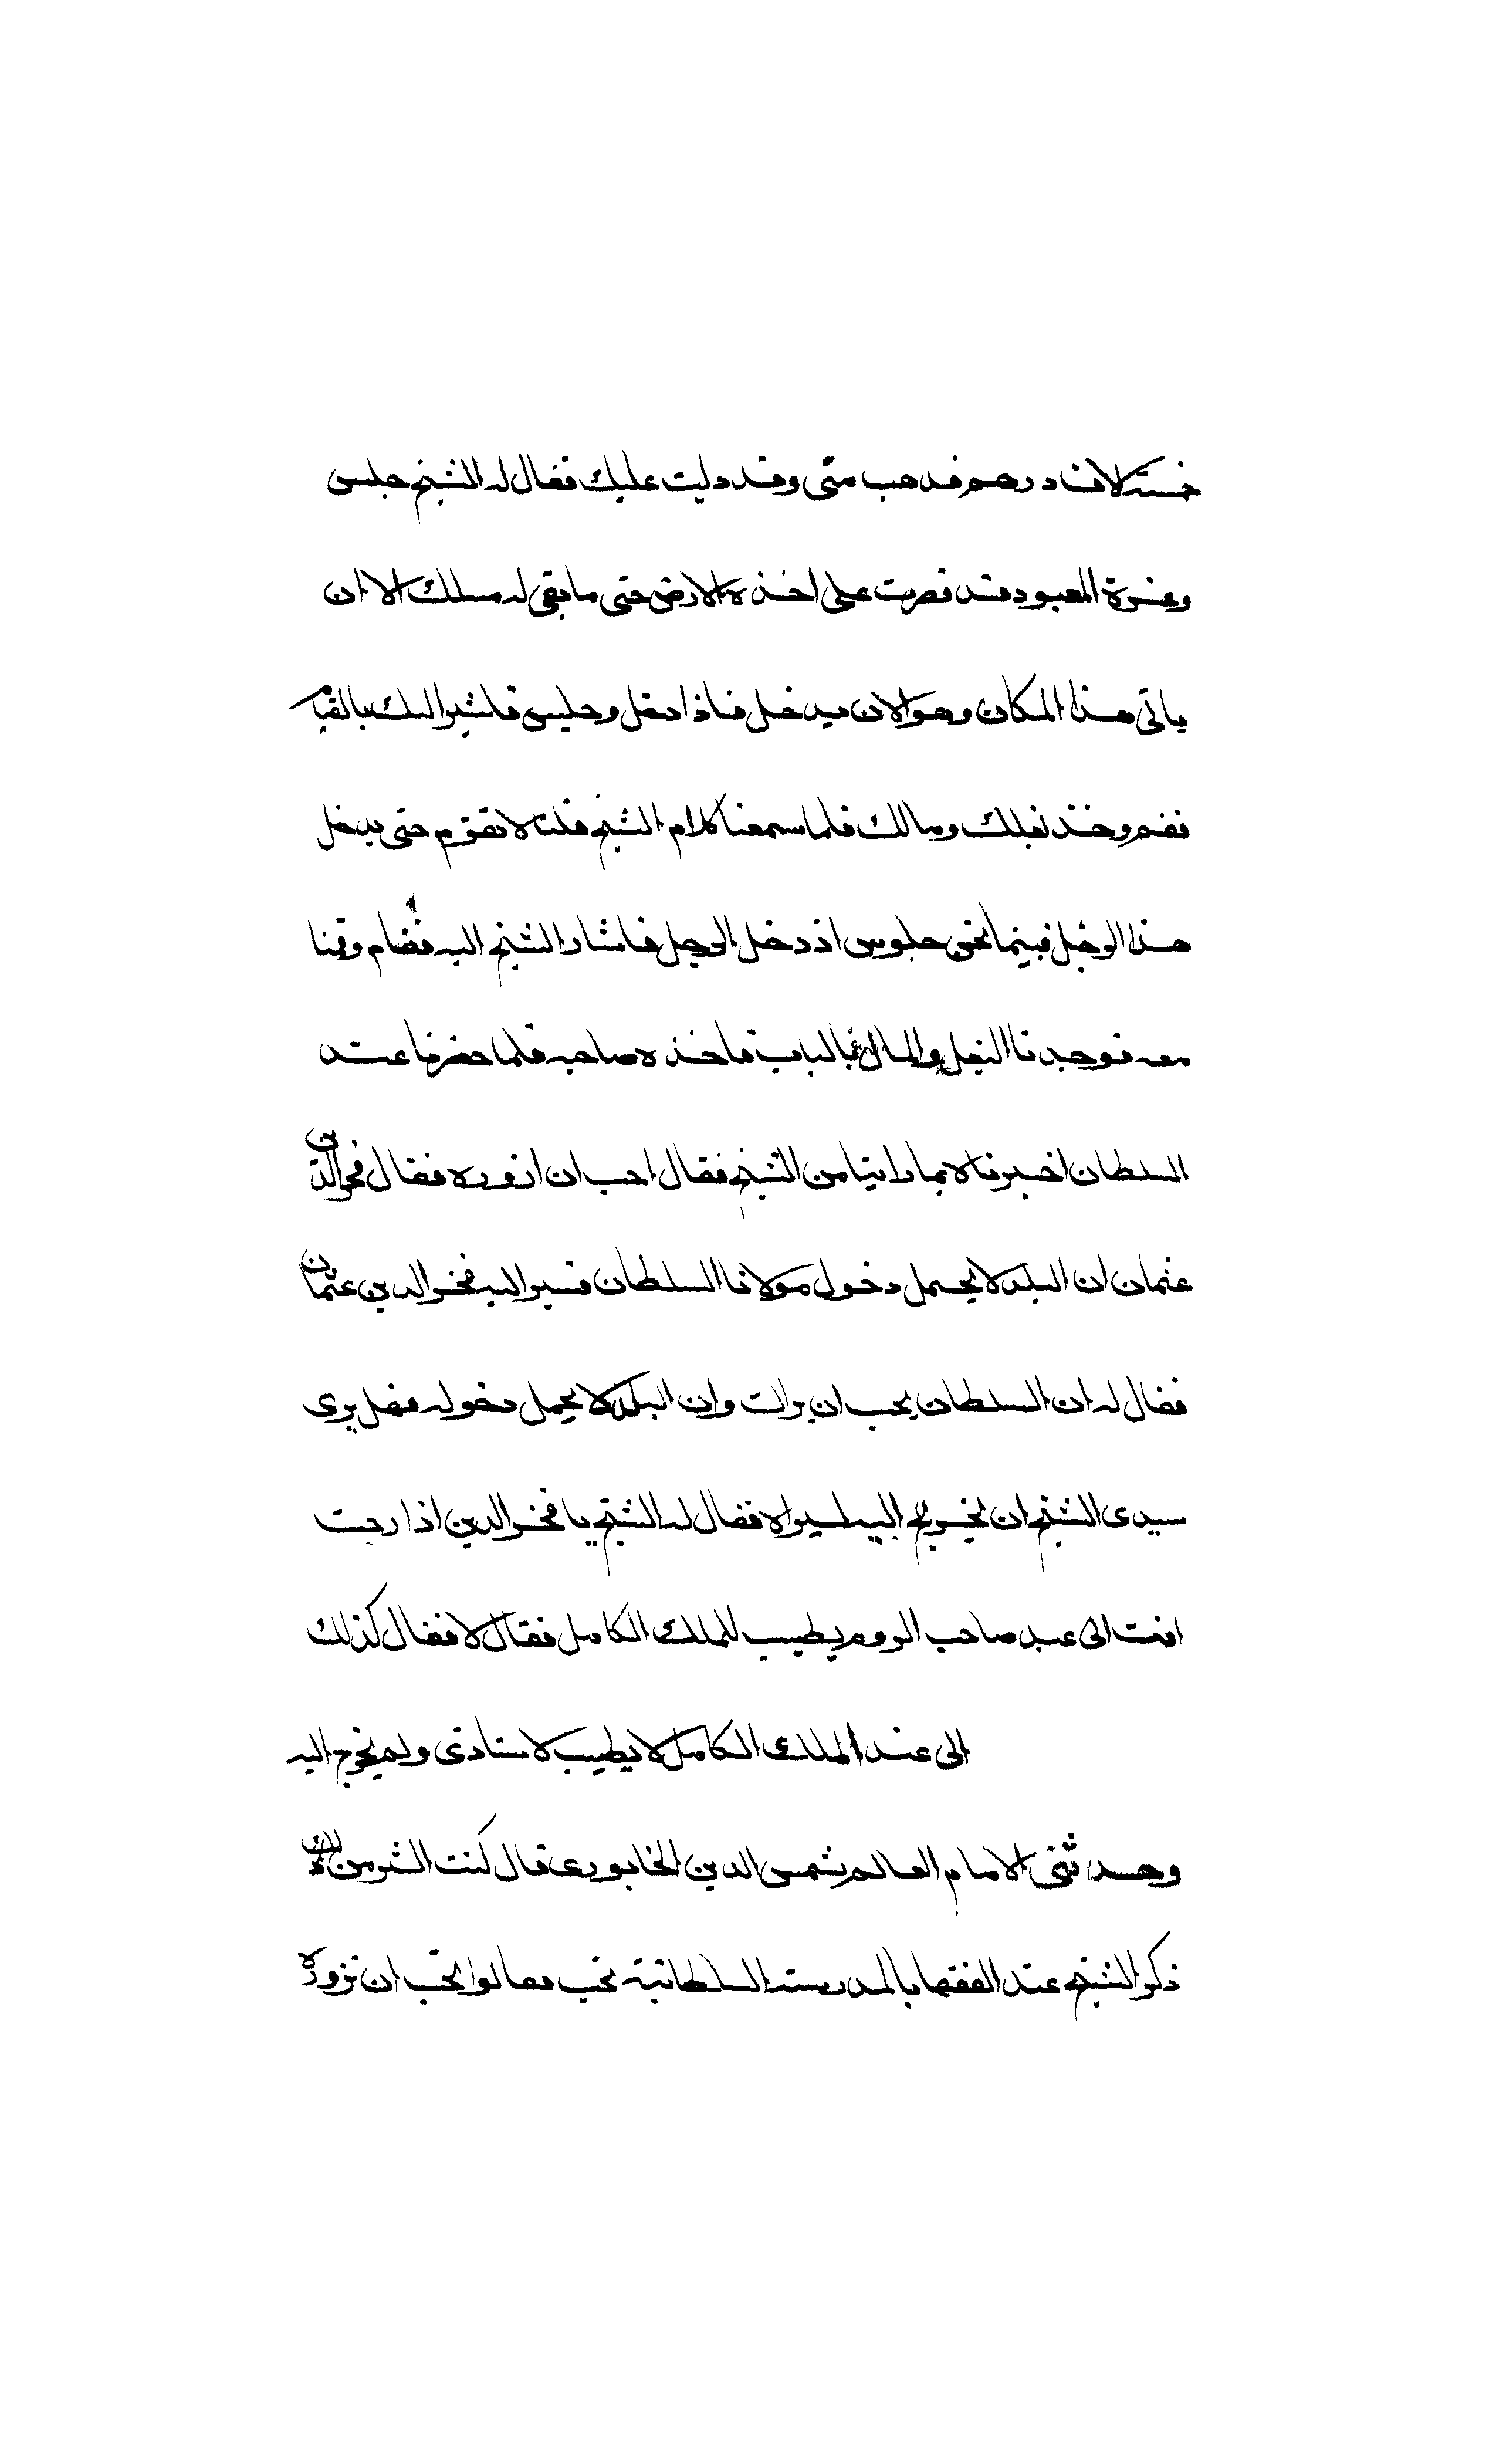 خمسة الاف درهم فذهب منى وقد دليت عليك فقال له الشيخ اجلس
وعزة المعبود قد قصرت على اخذه الارض حتى ما بقى له مسلك الا ان
ياتى هذا المكان وهو الان يدخل فاذا دخل وجلس فاشير اليك بالقيام
فقم وخذ نعلك ومالك فلما سمعنا كلام الشيخ قلنا لا نقوم حتى يدخل
هذا الرجل فبينما نحن جلوس اذ دخل الرجل فاشار الشيخ اليه فقام وقمنا
معه فوجدنا النعل والمال بالباب فاخذه صاحبه فلما حضرنا عند
السلطان اخبرناه بما راينا من الشيخ فقال احب ان ازوره فقال فخر الدين
عثمان ان البلد لا يحمل دخول مولانا السلطان فسير اليه فخر الدين عثمان
فقال له ان السلطان يحب ان يراك وان البلد لا يحمل دخوله فهل يرى
سيدى الشيخ ان يخرج اليه ليراه فقال له الشيخ يا فخر الدين اذا رحت
انت الى عند صاحب الروم يطيب للملك الكامل فقال لا فقال كذلك
الى عند الملك الكامل لا يطيب لاستاذى ولم يخرج اليه
وحدثنى الامام العالم شمس الدين الخابورى قال كنت اكثر من
ذكر الشيخ عند الفقها بالمدرسة السلطانية فقالوا نحب ان نزوره